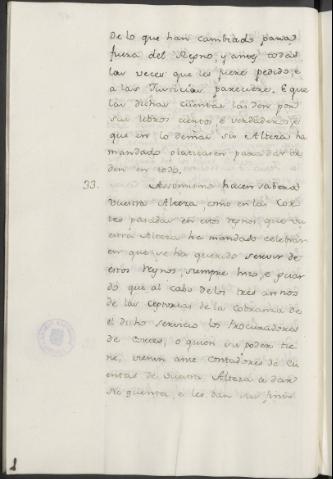 de lo que han cambiado para
fuera del Reyno, y años todas
las veces que les fuere pedido, e
a las Justicias pareciere. E que
las dichas cuentas las den por
sus libros ciertos e verdaderos, e
que en lo demas su Alteza ha
mandado platicar en para dar or
den en todo.
33. Assimismo hacen saber a
Vuestra Alteza, como en las Cor
tes pasadas en estos reynos que vu
estra Alteza ha mandado celebrar
en que se ha querido servir de
estos Reynos, siempre hizo, e guar
dó que al cabo de los tres annos
de las receptorias de la cobranza de
el dicho servicio los Procuradores
de Cortes, o quien su poder tie
ne, vienen ante contadores de cu
entas de Vuestra Alteza a dar
su quenta, e les dan sus finis